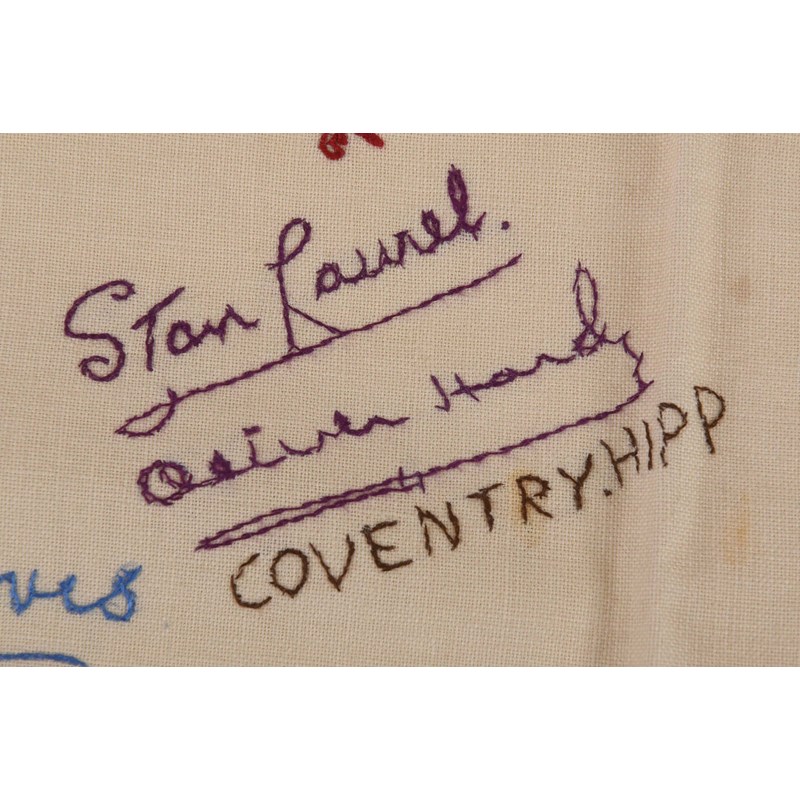 Stan Laurel.
Oliver Hardy
COVENTRY.HIPP